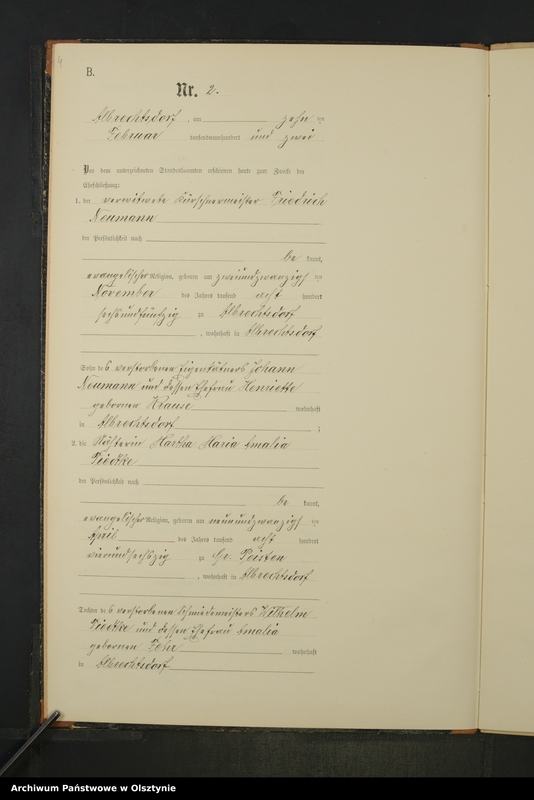 4
B.
Nr. 2.
Albrechtsdorf, am zehn ten
Februar tausendneunhundert und zwei
Vor dem unterzeichneten Standesbeamten erschienen heute zum Zwecke der
Eheschließung:
1. der verwitwete Kürschnermeister Friedrich
Neumann
der Persönlichkeit nach
be kannt,
evangelischer Religion, geboren am zweiundzwanzigsten
November des Jahres tausend acht hundert
sechsundfünfzig zu Albrechtsdorf
, wohnhaft in Albrechtsdorf
Sohn des verstorbenen Eigentümers Johann
Neumann und dessen Ehefrau Henriette
geborenen Krause wohnhaft
in Albrechtsdorf ;
2. die Martha Maria Amalia
der Persönlichkeit nach
be kannt,
evangelischer Religion, geboren am neunundzwanzigsten
April des Jahres tausend acht hundert
vierundsechszig zu Gr. Peisten
, wohnhaft in Albrechtsdorf
Tochter des verstorbenen Schmiedemeisters Wilhelm
und dessen Ehefrau Amalia
geborenen wohnhaft
in Albrechtsdorf
Archiwum Państwowe w Olsztynie